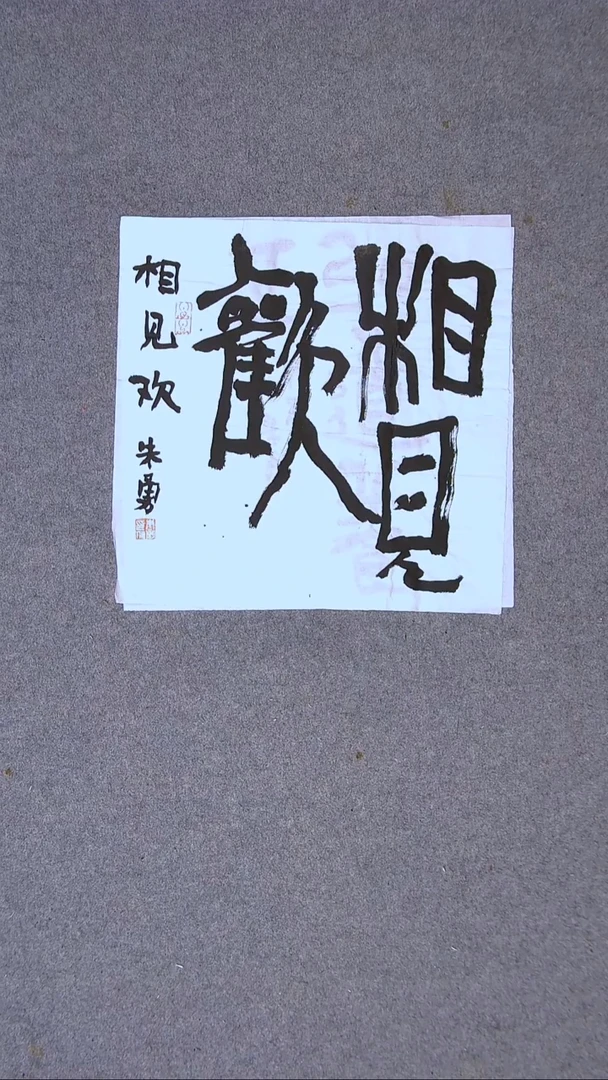 相見
歡
相见欢 朱勇